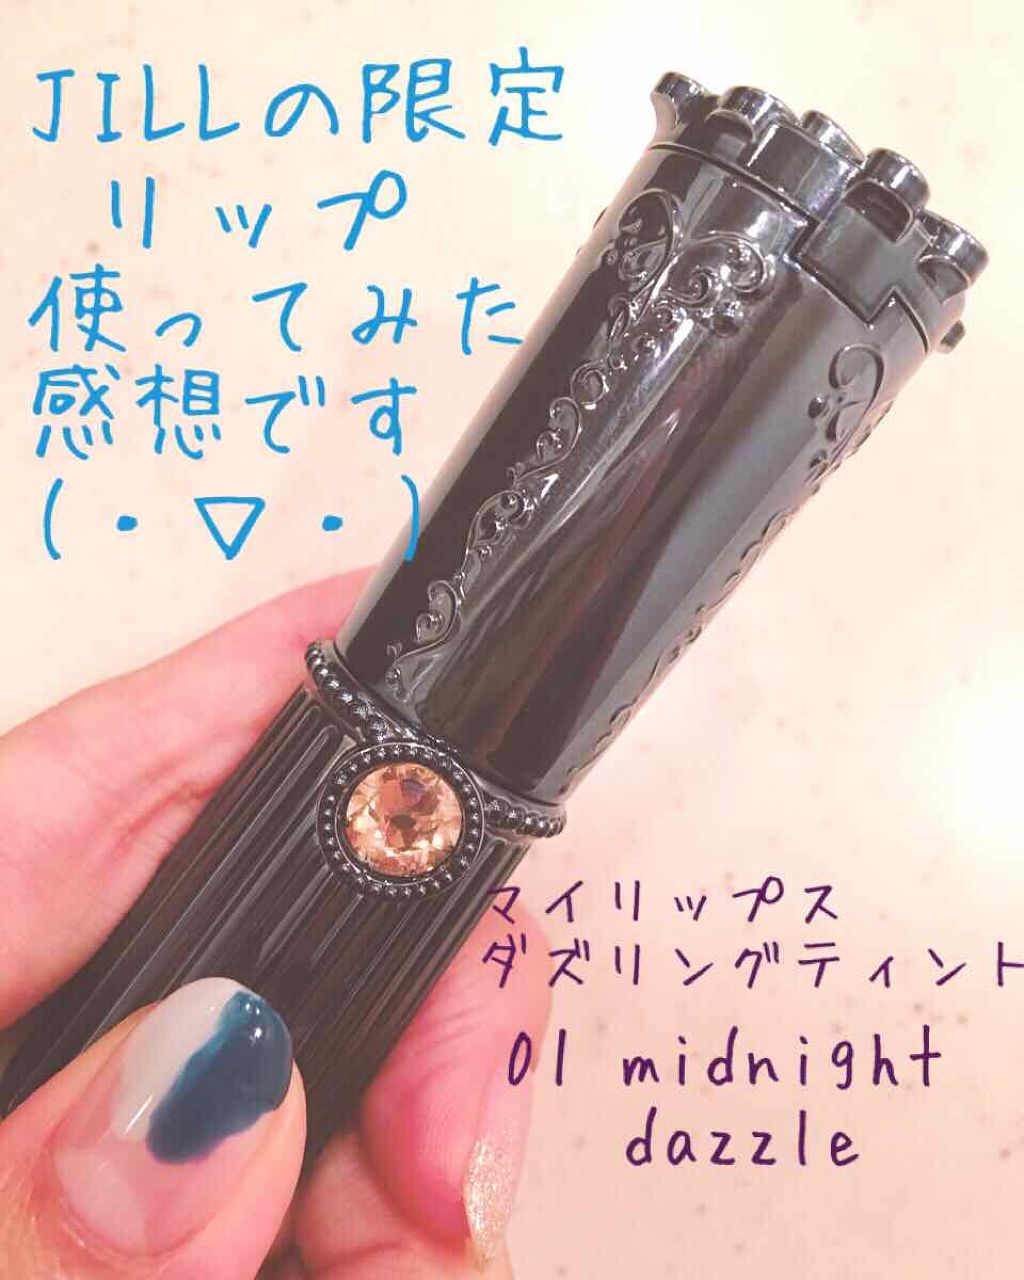 JILLの限定
リップ
使ってみた
感想です
(・▽・)
マイリップス
ダズリングティント
01 midnight
dazzle